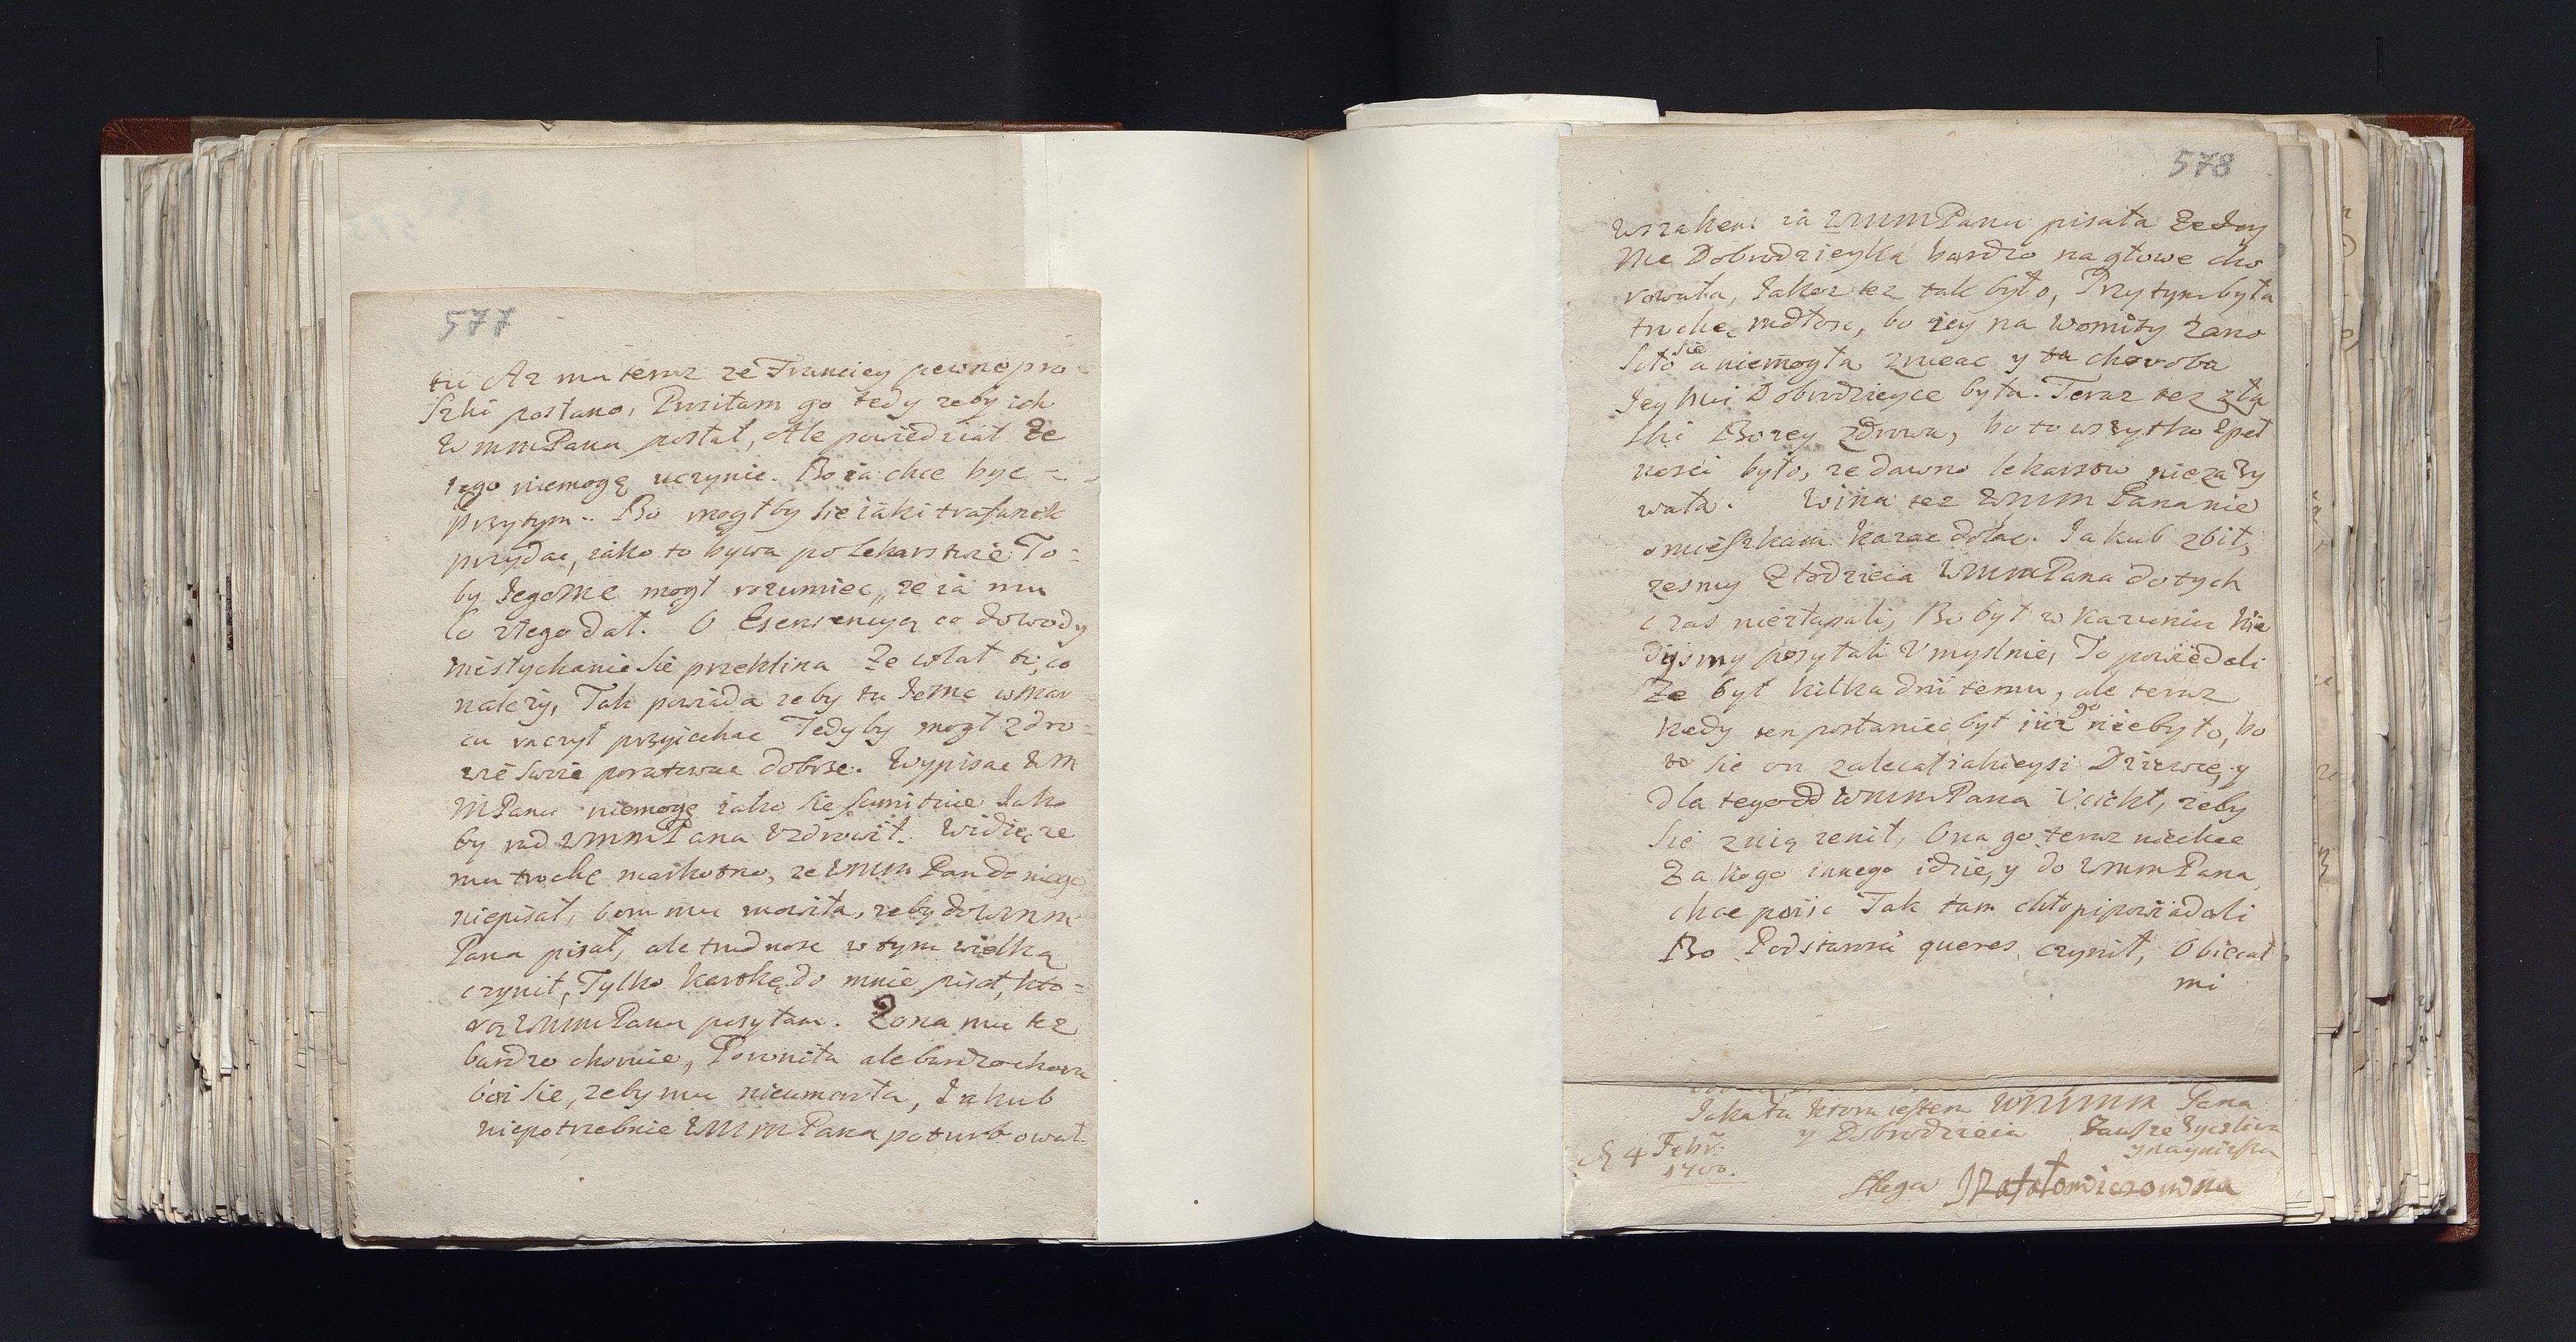 577
tu Az ma teraz ze Franciey pewne pro-
szki postano, Prositam go tedy zeby ich
WmmPanu postał, Ale powiedział Ze
tego niemogę uczynic. Bo ia chce byc
Przytym. Bo mogłby sie iaki trafunek
przydac, iako to bywa po lekarstwie To-
by JegoMc mogł rozumiec, ze ia mu
co złego dał. O Esensencyą co dowody
niesłychanie sie przeklina Ze wlał ti, co
nalezy, Tak powiada zeby tu JeMc w mar
cu raczył przyiechac Tedyby mogł zdro-
wie swoie poratowac dobrze. Wypisac WM
MPanu niemogę iako sie smitnie Jak
by rad WmmPana Uzdrowił. Widię ze
mu trochę markotno, ze WmmPan do niego
niepisał, bom mu mowiła, zeby do Wmm
Pana pisał, ale trudnosc w tym wielką
czynił, Tylko kartkę do mnie pisał, kto-
rą WmmPanu posyłam. Zona mu tez
bardzo choruie, Powiiła ale bardzo chora
boi sie, zeby mu nieumarła, Jakub
niepotrzebnie WMmPana poturbował
578
Wszakem ia WmmPanu pisała Ze Jey
Mc Dobrodzieyka bardzo na głowe cho
rowała, Jakoz tez tak było, Przytym była
trochę mdłosc, bo iey na womity zano
siło sie a niemogła zrucac y ta choroba
Jey Mci Dobrodzieyce była. Teraz tez z ła
ski Bozey zdrowa, bo to wszytko z peł
nosci było, ze dawno lekarstw niezazy
wała. Wina tez WmmPana nie
omieszkam kazac dolac. Jakub zbił,
zesmy Złodzieia WmmPana dotych
czas niezłapali, Bo był w Karuniu kie
dysmy posyłali Umyslnie, To powiedali
Ze był kilka dni temu, ale teraz
kiedy ten postaniec był iuz go niebyło, bo
to sie on zalecał iakieysi Dziewce, y
dla tego od WmmPana Uciekł, zeby
sie z nią zenił, Ona go teraz niechce
Za kogo innego idzie, y do WmmPana
chce poisc Tak tam chłopi powiadali
Bo Podstarosci queres czynił, Obiecał
mi
Jaka tu ktora iestem WMMM Pana
y Dobrodzieia Zawsze zyczliwa
y naynizsza
4 Febr:
1700.
sługa